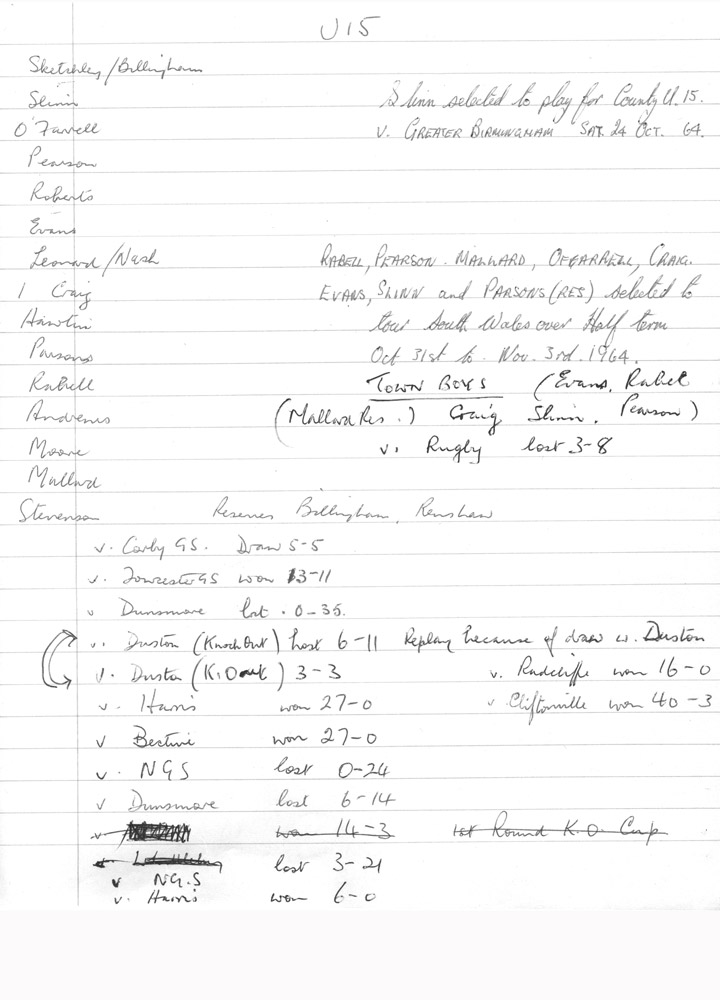 U15
Sketchley/Billingham
Slinn
Slinn selected to play for County U.15.
O'Farrell
v. GREATER BIRMINGHAM SAT. 24 OCT. 64.
Pearson
Roberts
Evans
Leonard/Nash
RABELL, PEARSON. MALLARD, OFFARRELL, CRAIG.
1 Craig
EVANS, SLINN and PARSONS (RES) selected to
Hawtin
tour South Wales over Half term
Parsons
Oct 31st to. Nov. 3rd. 1964.
Rabell
TOWN BOYS (Evans, Rabel
Andrews
(Mallard Res.) Craig Slinn, Pearson)
Moore
v. Rugby lost 3-8
Mallard
Stevenson
Reserves Billingham, Renshaw
v. Corby GS. Draw 5-5
v. Towcester GS won 13-11
v Dunsmore lost. 0-35.
v. Duston (Knock Out) lost 6-11 Replay because of draw w. Duston
v. Duston (K.O) 3-3
v. Radcliffe won 16-0
v. Harris won 27-0
v. Cliftonville won 40-3
v Bective won 27-0
v. NGS lost 0-24
v Dunsmore lost 6-14
v won 14-3 1st Round K.O. Cup
lost 3-21
v NG.S
v. Harris won 6-0